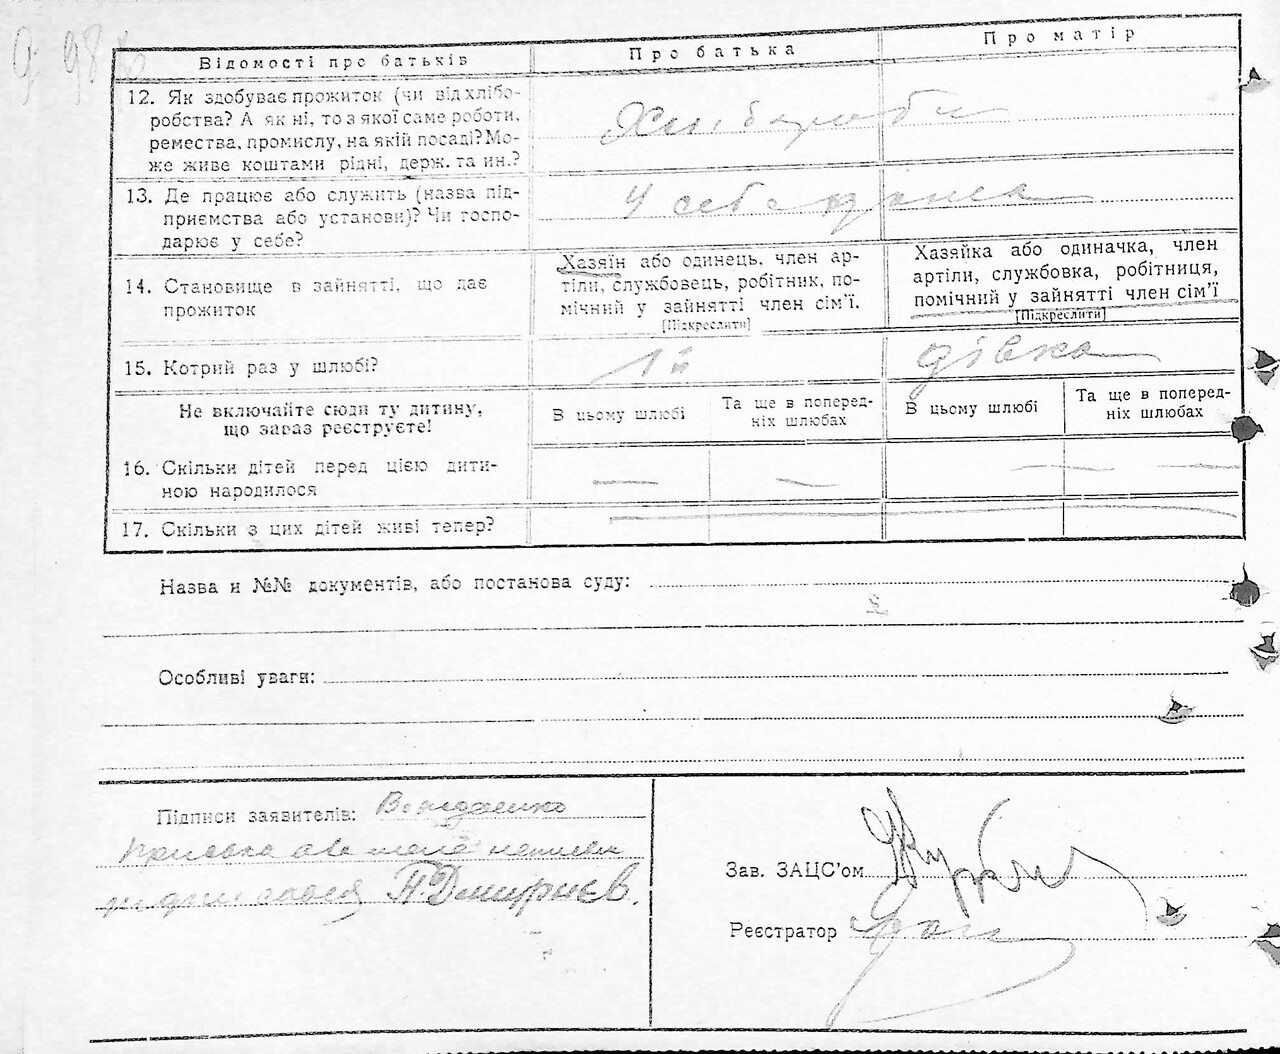 Відомості про батьків
Про батька
Про матір
12. Як здобуває прожиток (чи від хлібо-
робства? А як ні, то з якої саме роботи,
ремества, промислу, на якій посаді? Мо-
же живе коштами рідні, держ. та ин.?
13. Де працює або служить (назва під-
приємства або установи)? Чи госпо-
дарює у себе?
У себе дома
14. Становище в зайнятті, що дає
прожиток
Хазяїн або одинець, член ар-
тіли, службовець, робітник, по-
мічний у зайнятті член сім'ї.
[Підкреслити]
Хазяйка або одиначка, член
артіли, службовка, робітниця,
помічний у зайнятті член сім'ї
[Підкреслити]
15. Котрий раз у шлюбі?
1й
дівка
Не включайте сюди ту дитину,
що зараз реєструєте!
В цьому шлюбі
Та ще в поперед-
ніх шлюбах
В цьому шлюбі
Та ще в поперед-
ніх шлюбах
16. Скільки дітей перед цією дити-
ною народилося
17. Скільки з цих дітей живі тепер?
Назва и №№ документів, або постанова суду:
Особливі уваги:
Підписи заявителів:
П. Дмитриєв.
Зав. ЗАЦС'ом
Реєстратор